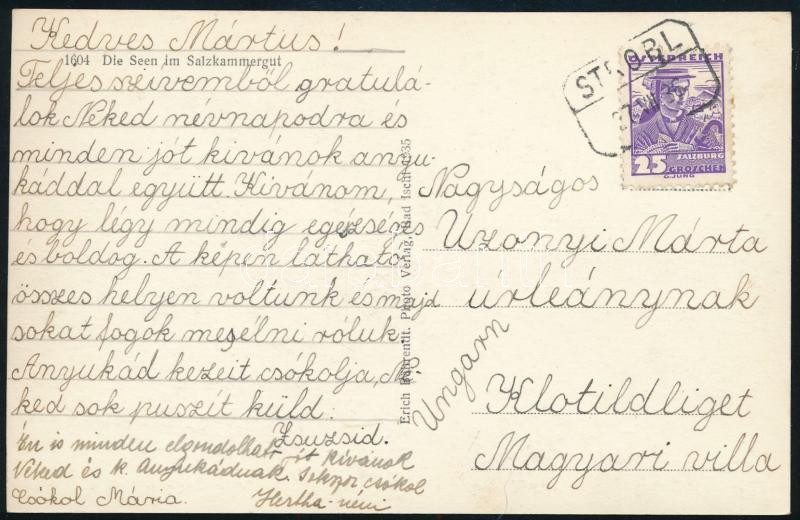 Kedves Mártus!
1604 Die Seen im Salzkammergut
Teljes szivemből gratulá-
lok Neked névnapodra és
minden jót kivánok anyu-
káddal együtt. Kivánom,
hogy légy mindig egészséges
és boldog. A képen látható
összes helyen voltunk és majd
sokat fogok mesélni róluk.
Anyukád kezeit csókolja, Ne-
ked sok puszit küld:
Zsuzsid.
Én is minden elgondolható jót kivánok
Néked és k. Anyukádnak. Sokszor csókol
Hertha néni
Csókol Mária.
Erich Bährendt. Photo Verlag, Bad Ischl 1935
STROBL
ÖSTERREICH
25
SALZBURG
GROSCHEN
G.JUNG
Nagyságos
Uzonyi Márta
úrleánynak
Klotildliget
Magyari villa
Ungarn